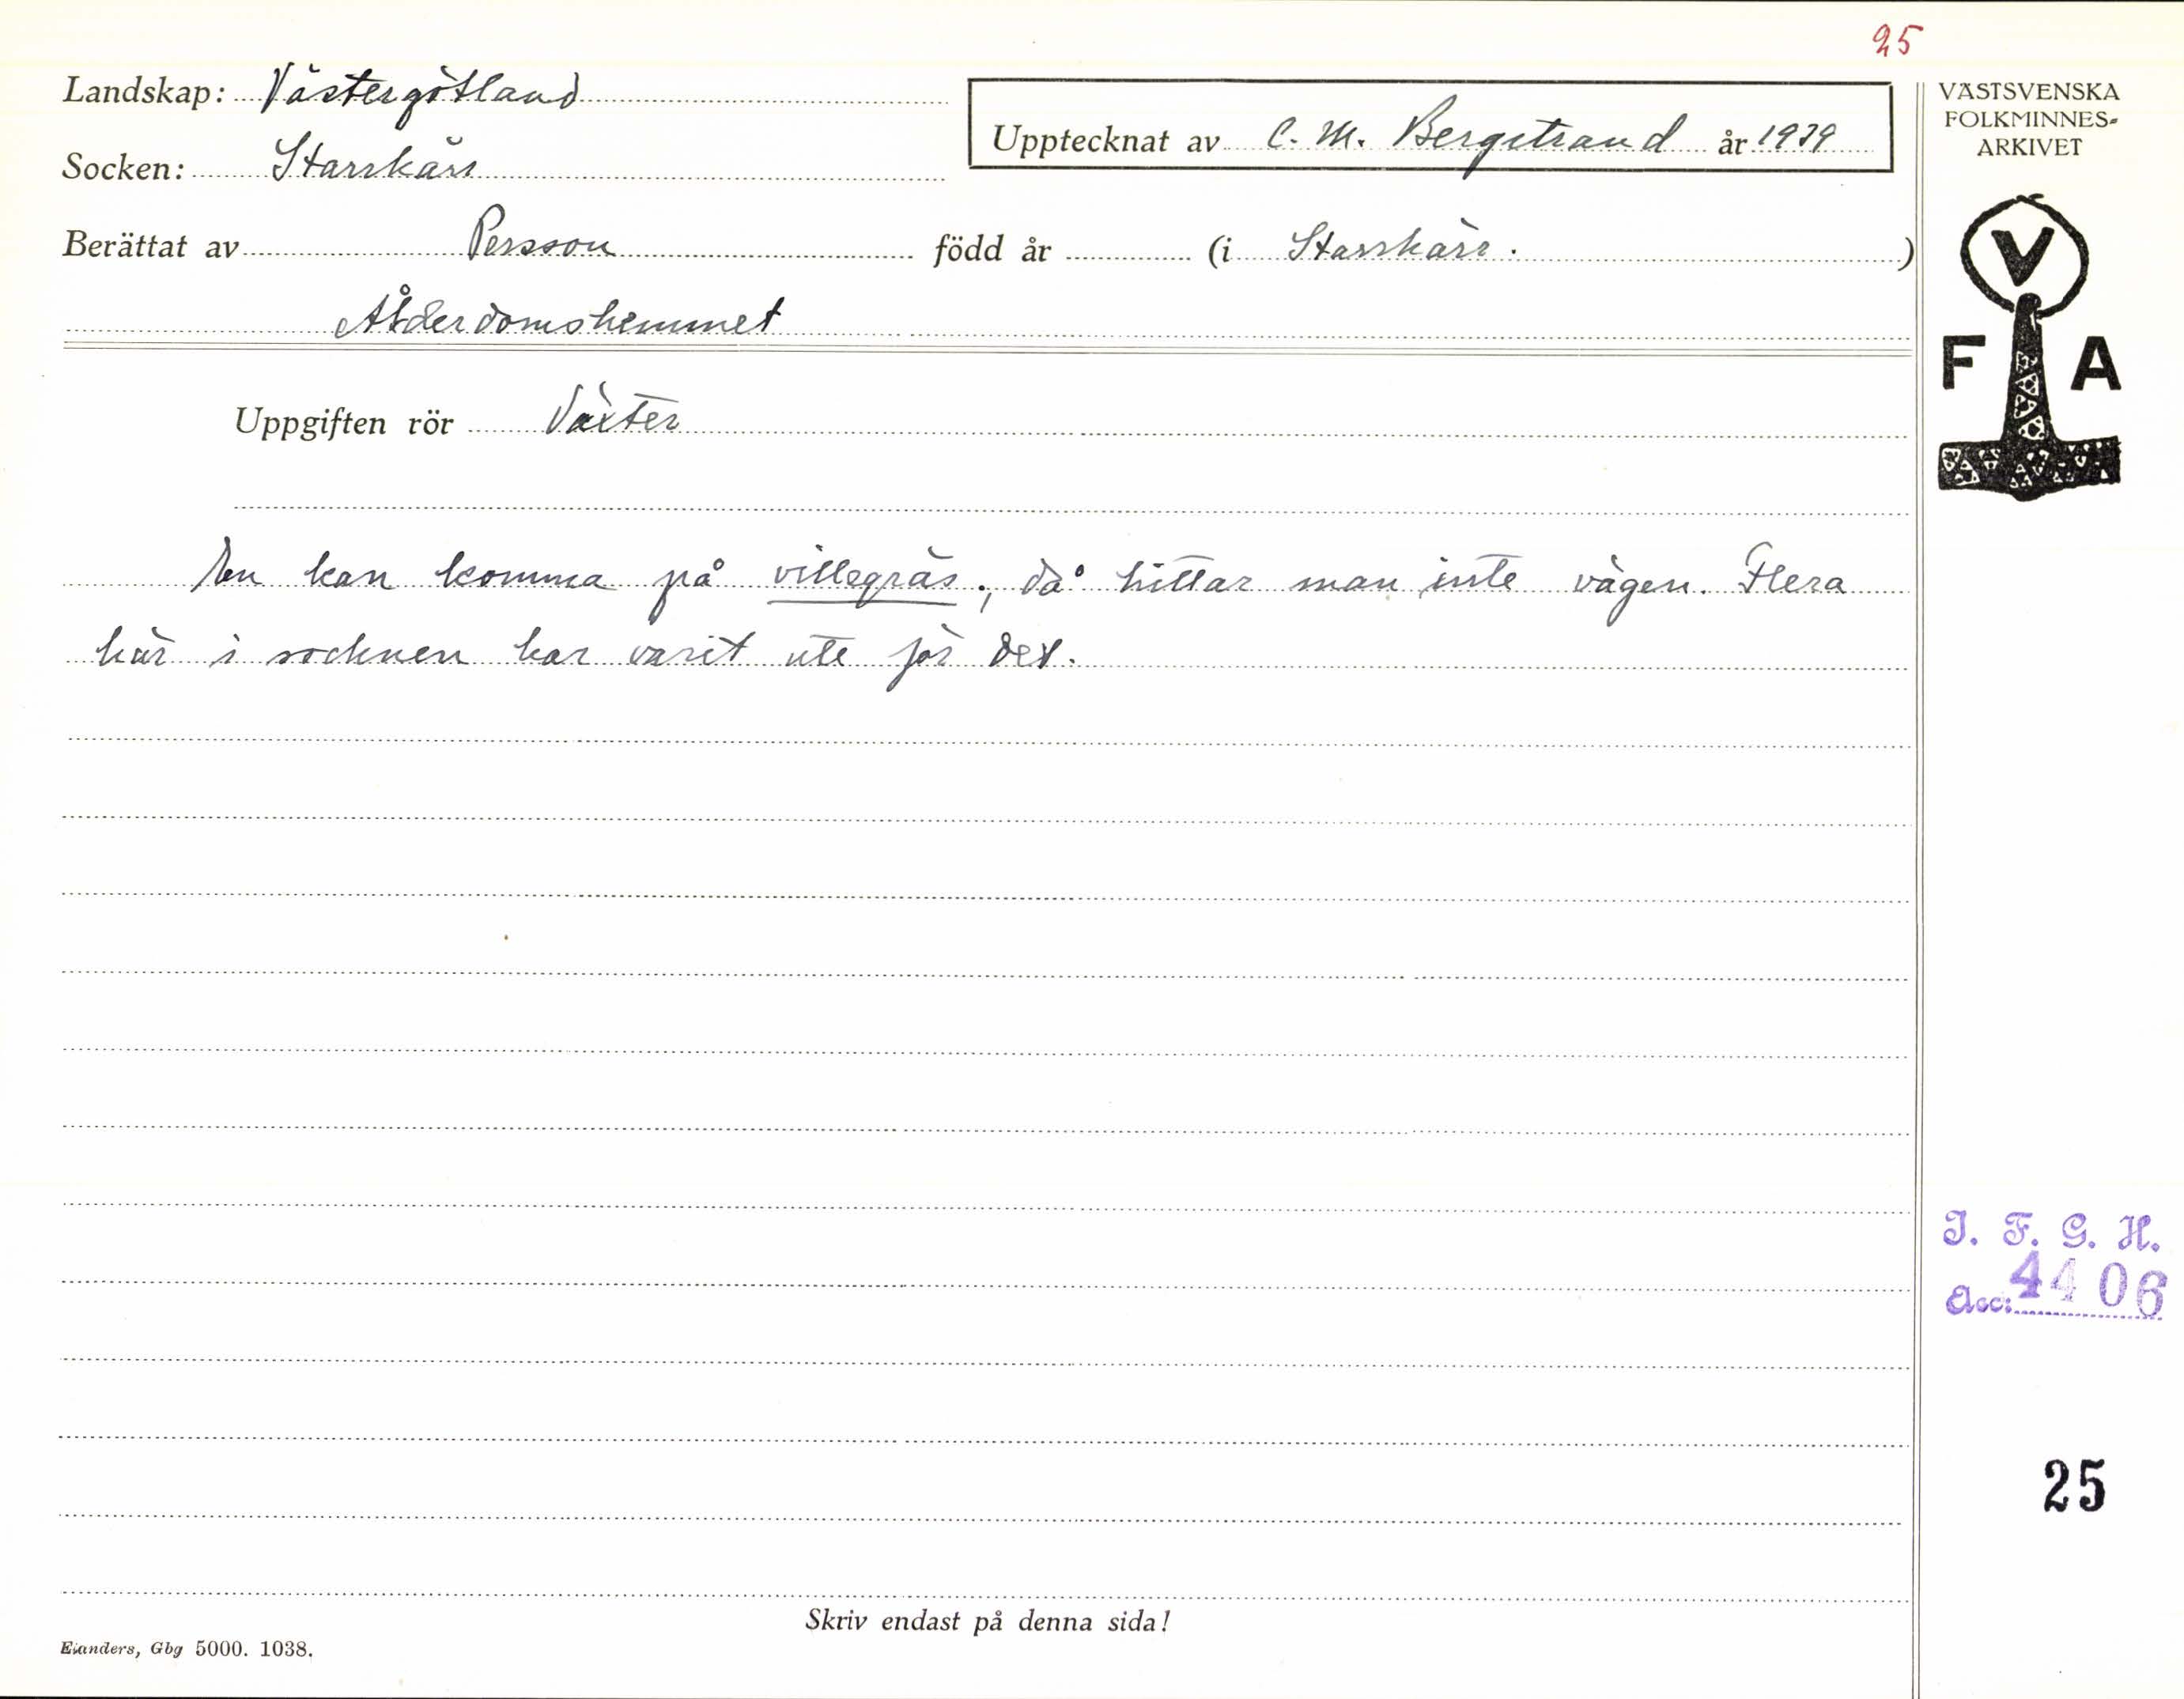 25
Landskap: Västergötland
Upptecknat av C. M. Bergstrand år 1939
Socken: Starrkärr
Berättat av Persson född år (i Starrkärr.)
Ålderdomshemmet
Uppgiften rör Växter
En kan komma på villegräs., då hittar man inte vägen. Flera
här i socknen har varit ute för det.
Skriv endast på denna sida!
Elanders, Gbg 5000. 1038.
VÄSTSVENSKA
FOLKMINNES-
ARKIVET
V
F A
I. F. G. H.
Acc: 4406
25